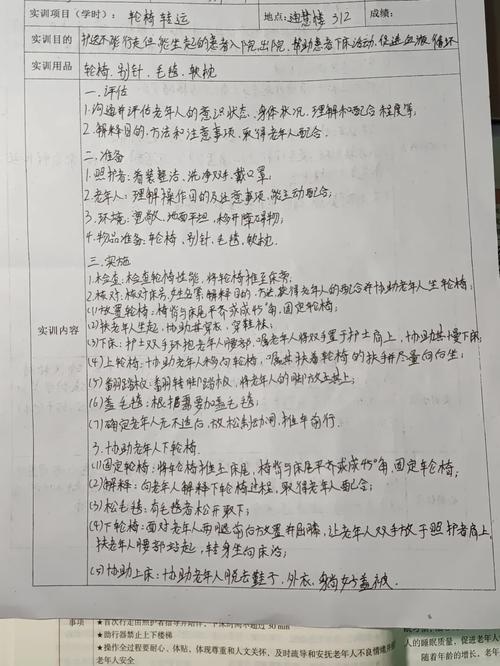 实训项目(学时): 轮椅转运 地点: 312 成绩:
实训目的 护送不能行走但能坐起的患者入院,出院,帮助患者下床活动,促进血液循环
实训用品 轮椅、别针、毛毯、软枕
实训内容
一.评估
1.沟通并评估老年人的意识状态、身体状况、理解和配合程度等。
2.解释目的、方法和注意事项,取得老年人配合。
二.准备
1.照护者:着装整洁、洗净双手、戴口罩;
2.老年人:理解操作目的及注意事项,能主动配合;
3.环境:宽敞、地面平坦,移开障碍物;
4.物品准备:轮椅、别针、毛毯、软枕.
三.实施
1.检查:检查轮椅性能,将轮椅推至床旁.
2.核对:核对床号,姓名,解释目的、方法,取得老年人的配合并协助老年人坐轮椅;
(1)放置轮椅:椅背与床尾平齐或成45°角,固定轮椅;
(2)扶老年人坐起,协助其穿衣、穿鞋袜.
(3)下床:护士双手环抱老年人腰部,嘱老年人将双手置于护士肩上,协助其慢下床;
(4)上轮椅:协助老年人移向轮椅,嘱其扶着轮椅的扶手并尽量向后坐;
(5)翻踏板:翻转脚踏板,将老年人的脚放于其上;
(6)盖毛毯:根据需要加盖毛毯;
(7)确定老年人无不适后,放松制动闸,推车前行.
3.协助老年人下轮椅.
(1)固定轮椅:将轮椅推至床尾,椅背与床尾平齐或成45°角,固定轮椅.
(2)解释:向老年人解释下轮椅过程,取得老年人配合;
(3)松毛毯:有毛毯者松开取下;
(4)下轮椅:面对老年人两腿前后放置并屈膝,让老年人双手放于照护者肩上,
扶老年人腰部站起,转身坐向床沿;
(5)协助上床:协助老年人脱去鞋子、外衣、躺好盖被.
事项
★首次行走由照护者指导并陪伴,下床时间不超过30 min
★助行器禁止上下楼梯
★操作全过程要耐心、体贴,体现尊重和人文关怀,及时疏导和安抚老年人不良情绪并
老年人安全
的睡眠质量,促进老年人
随着年龄的增长,老年